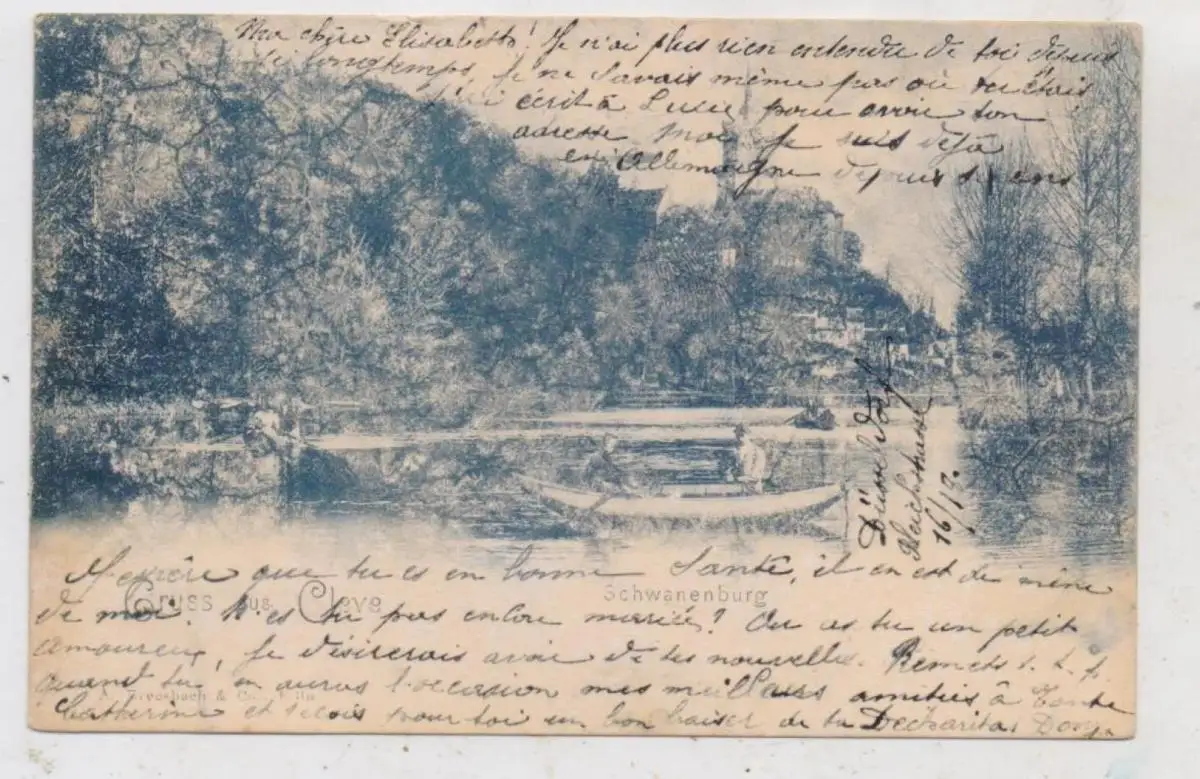 Ma chère Elisabeth! Je n'ai plus rien entendre de toi depuis
si longtemps, Je ne savais même pas où tu étais
J'ai écrit à Lucie pour avoir ton
adresse Moi Je suis déjà
en Allemagne depuis ans
Düsseldorf
16/12
J'espère que tu es en bonne Santé, il en est de même
Gruss aus Cleve
Schwanenburg
de moi. N'es tu pas encore mariée? Ou as tu un petit
amoureux, Je désirerais avoir de tes nouvelles. Remets s. t. p.
quand tu en auras l'occasion mes meilleurs amitiés à Tante
& Co.
Catherine et reçois pour toi un bon baiser de ta